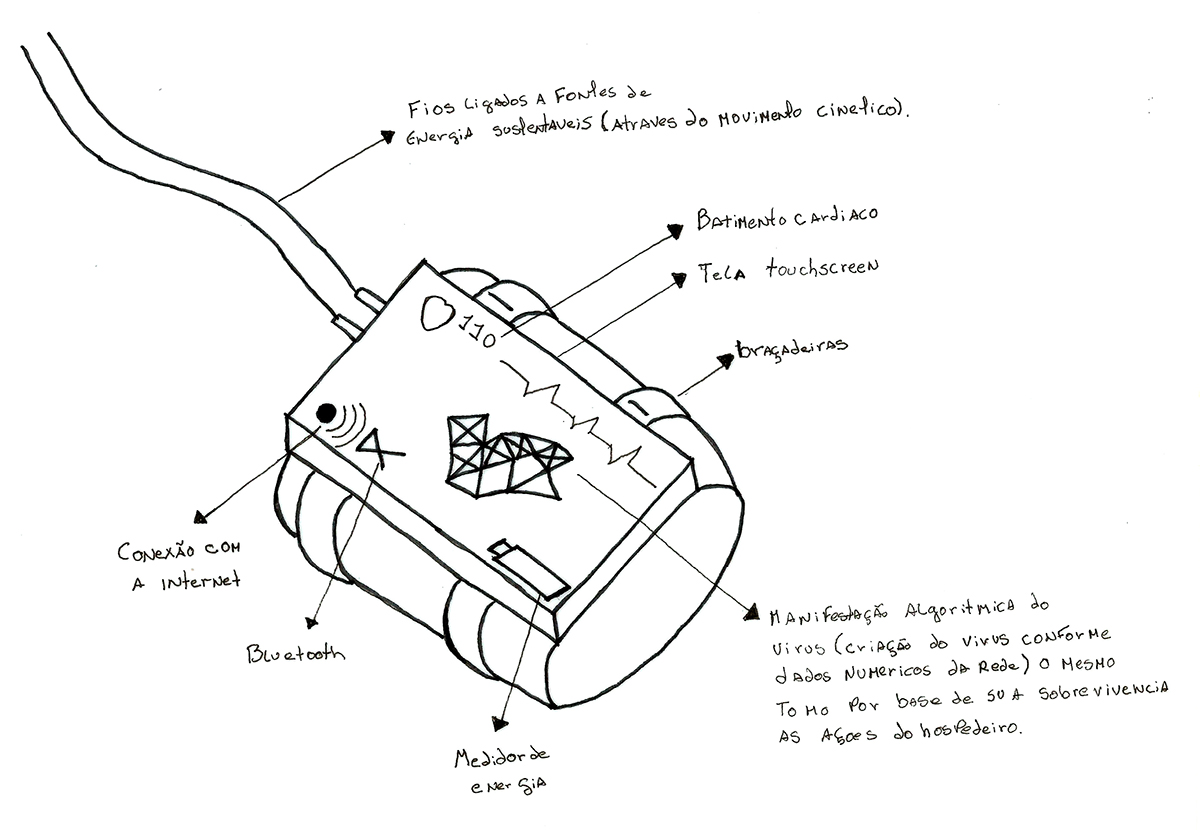 Fios Ligados A Fontes de
energia sustentaveis (Atraves do movimento cinetico).
Batimento cardiaco
Tela touchscreen
braçadeiras
110
Conexão com
A internet
Bluetooth
Medidor de
energia
Manifestação Algoritmica do
virus (criação do virus conforme
dados numericos da Rede) o mesmo
tomo por base de sua sobrevivencia
as ações do hospedeiro.